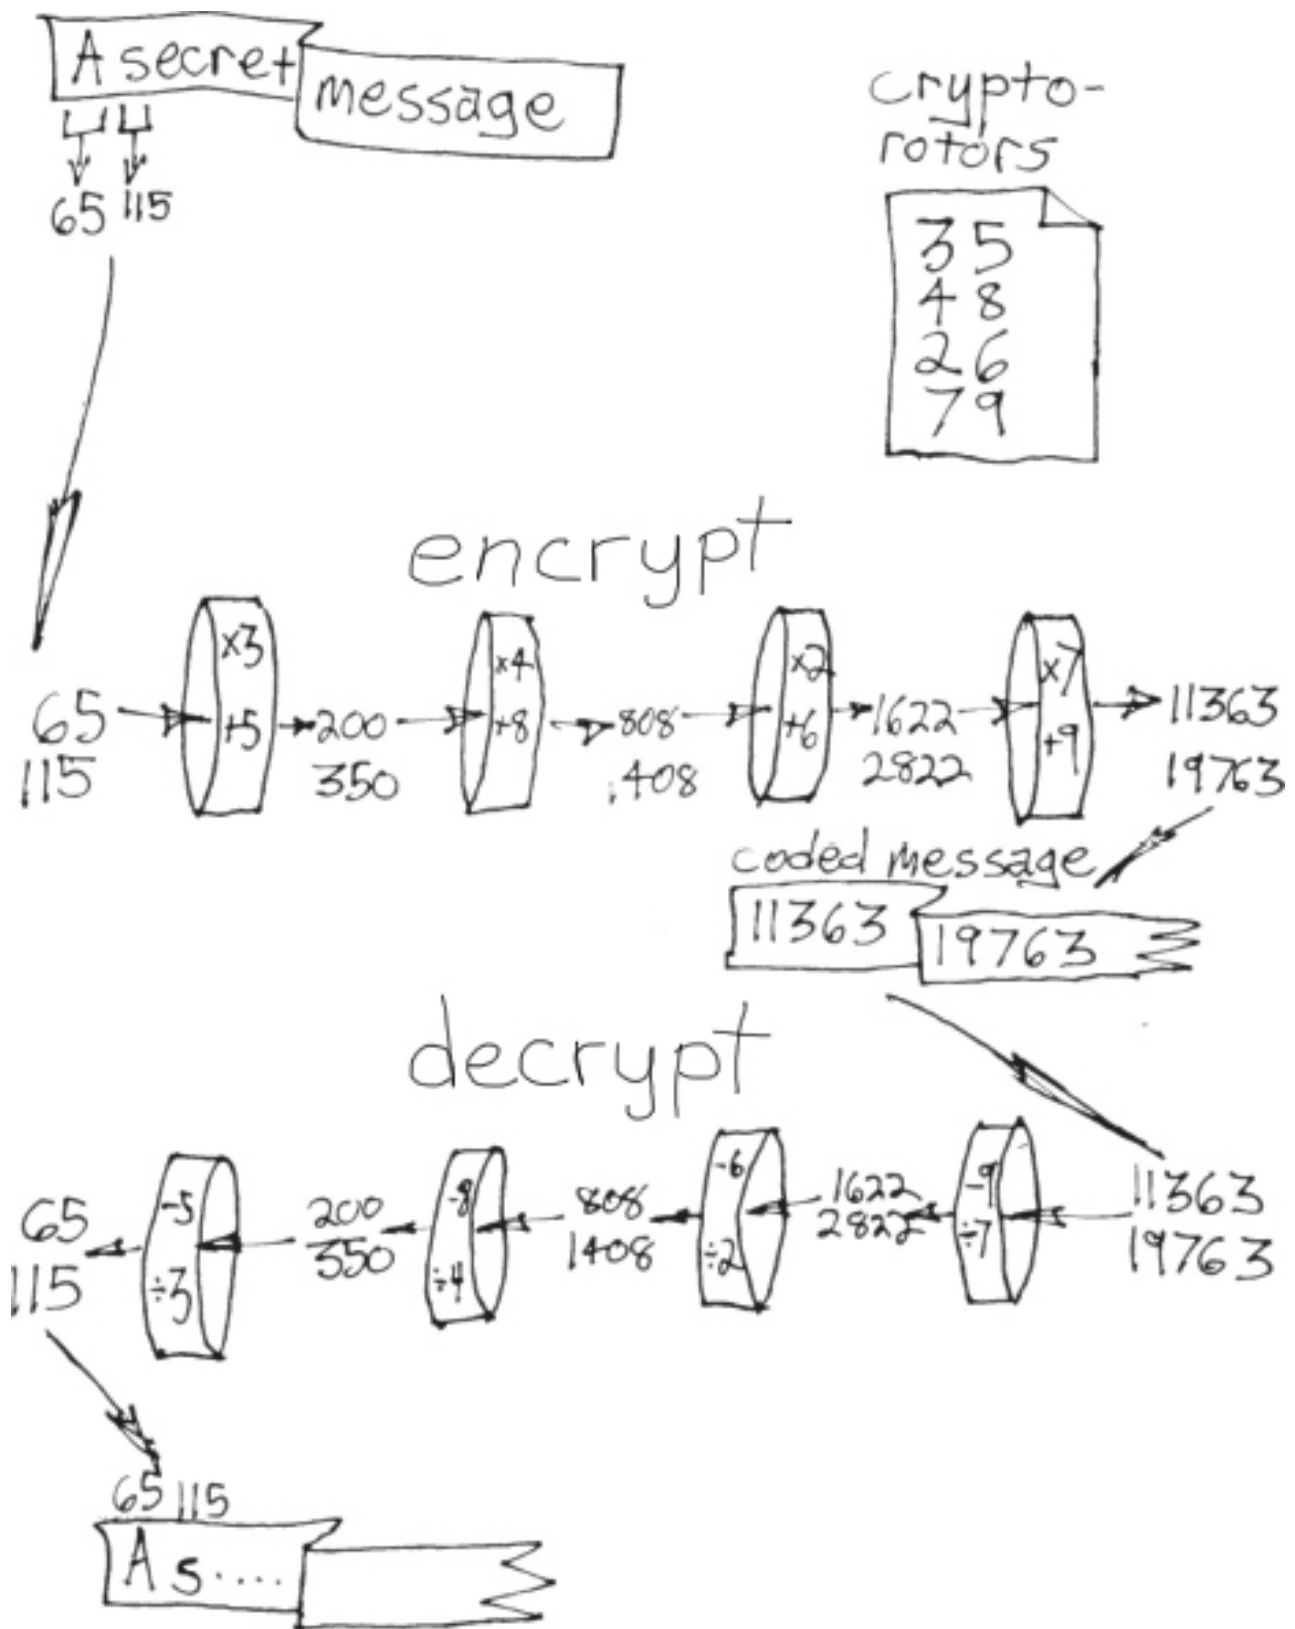 A secret
message
65 115
crypto-
rotors
3 5
4 8
2 6
7 9
encrypt
65
115
x3
+5
200
350
x4
+8
808
1408
x2
+6
1622
2822
x7
+9
11363
19763
coded message
11363
19763
decrypt
65
115
-5
÷3
200
350
-8
÷4
808
1408
-6
÷2
1622
2822
-9
÷7
11363
19763
65 115
A s....